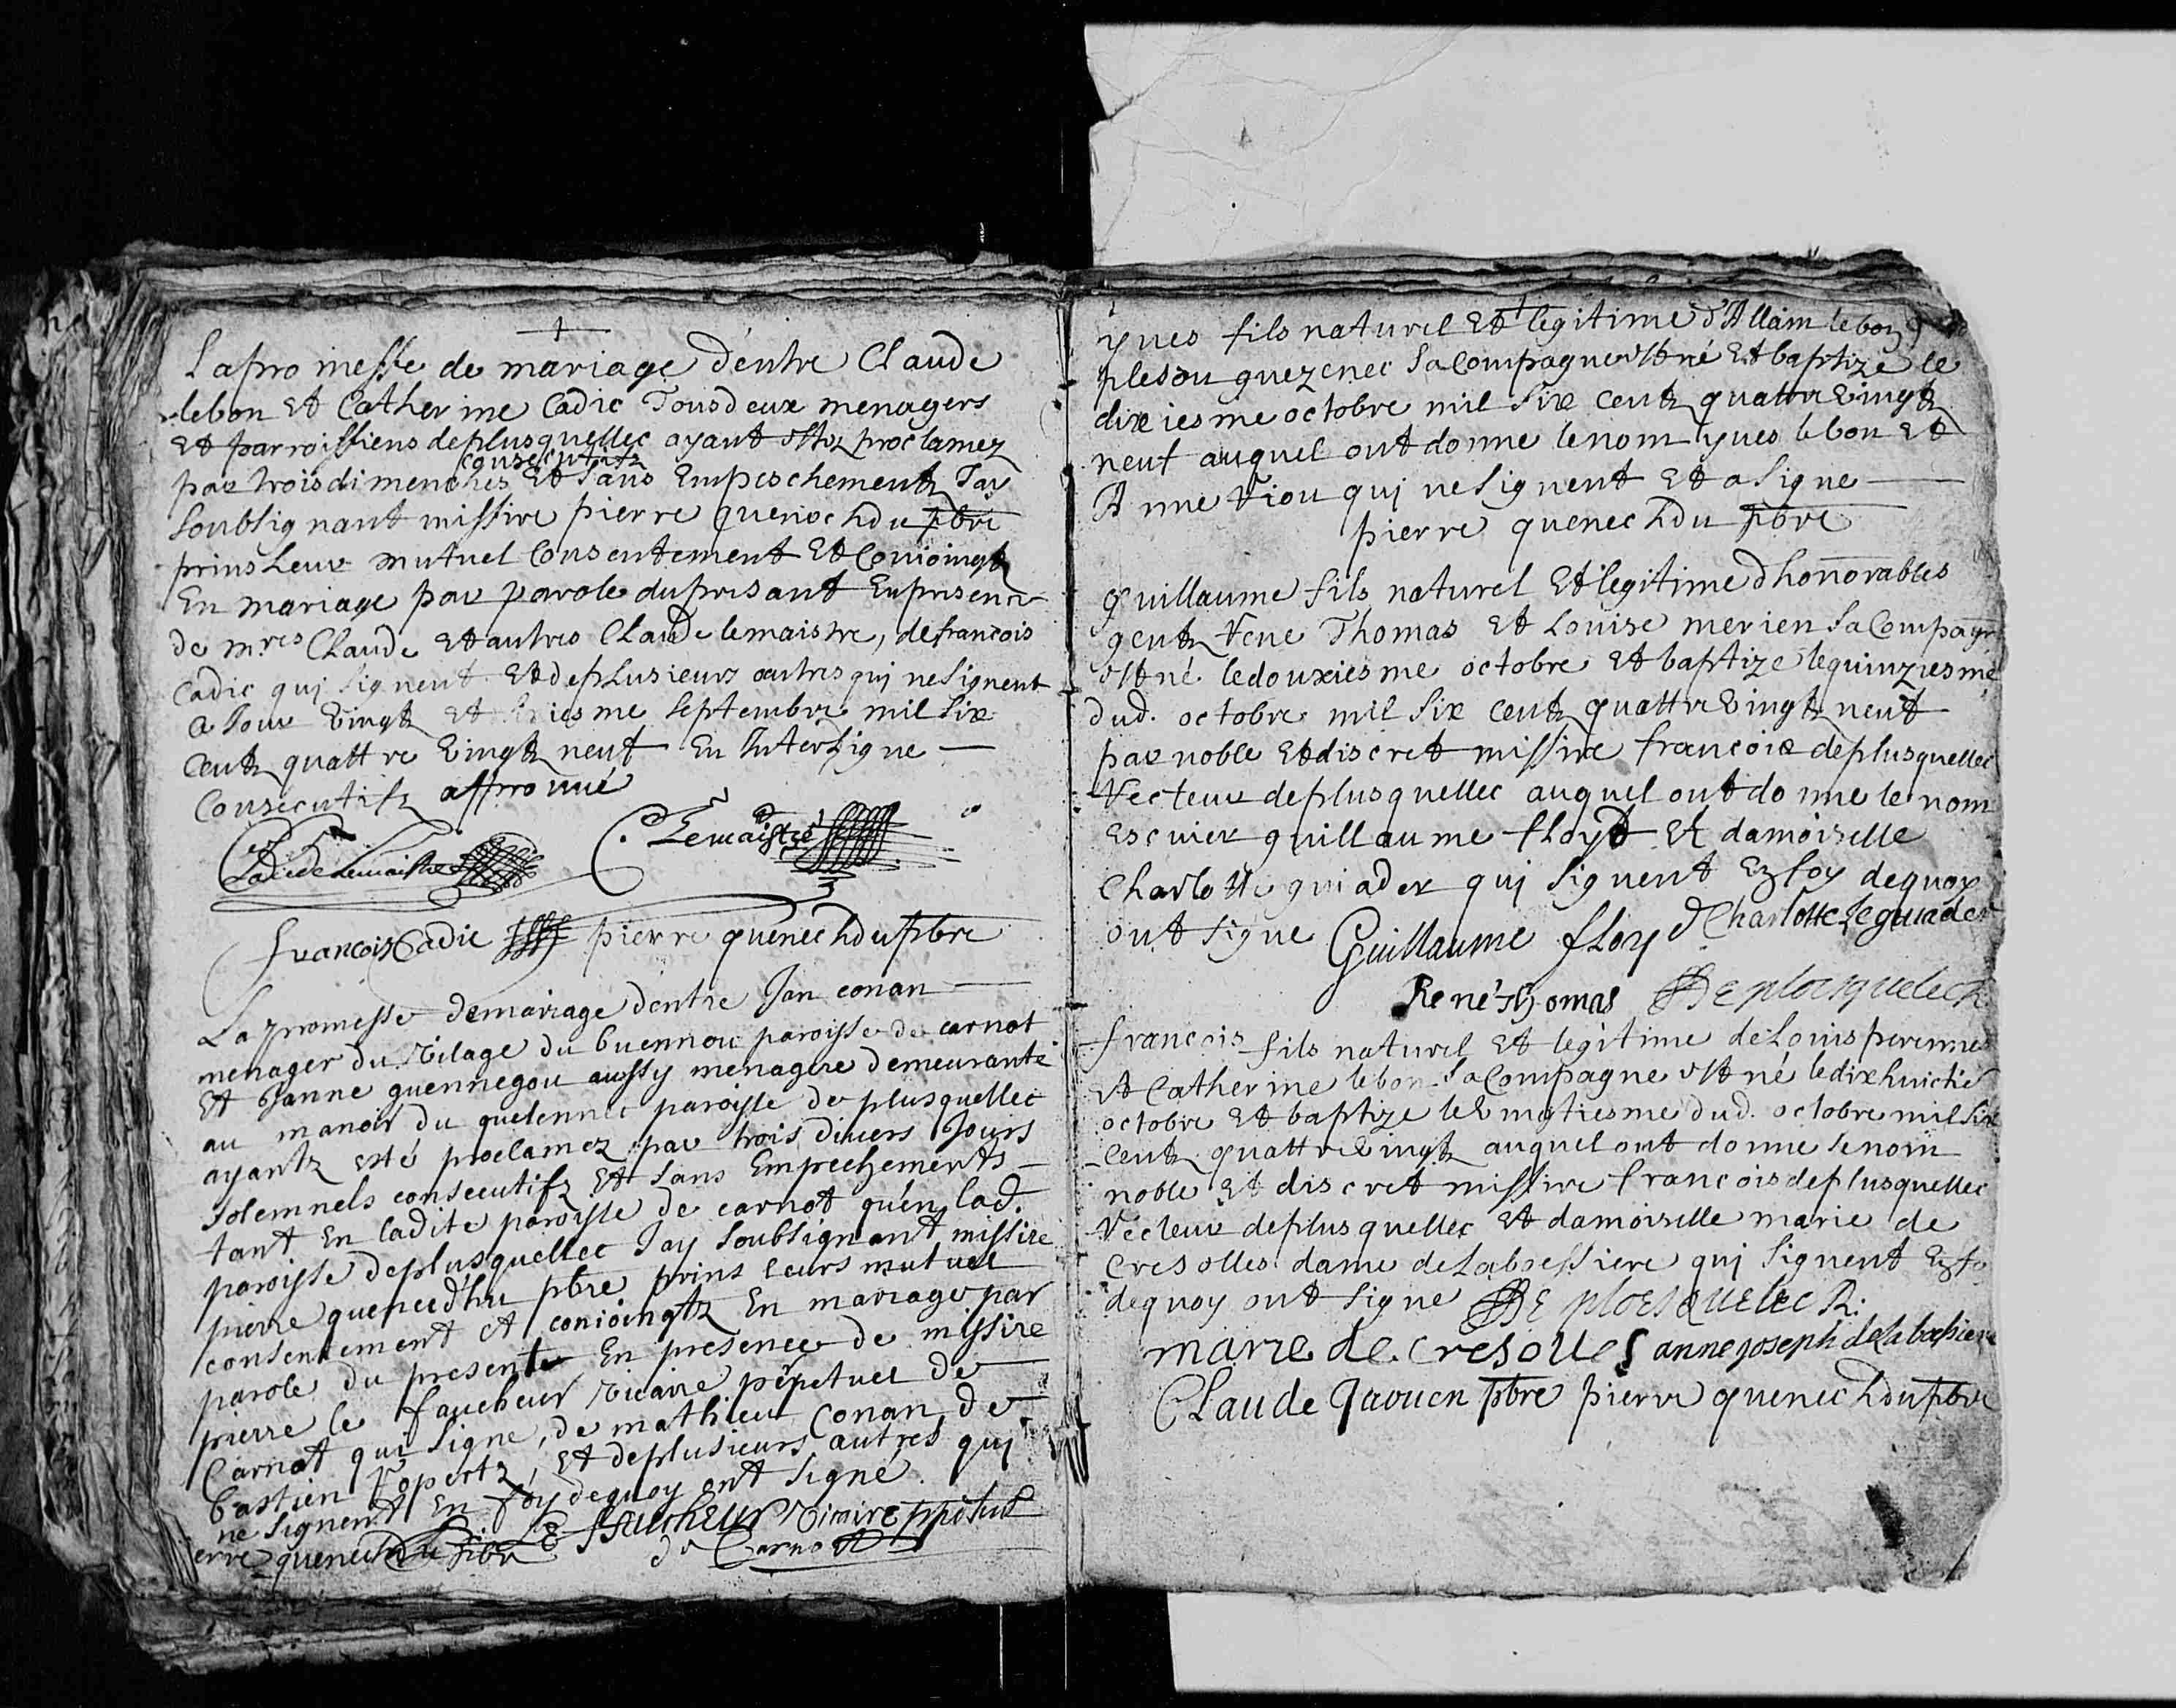 La promesse de mariage d'entre Claude
lebon Et Catherine Cadic Tous deux menagers
Et parroissiens de plusquellec ayant estez proclamez
consecutifz
par trois dimenches Et sans Empeschementz Jay
soubsignant missire pierre quenechdu pbre
prins Leur mutuel Consentement Et Conioingtz
En mariage par parole du presant En presence
de m.res Claude Et autres Claude lemaistre, de francois
Cadic qui signent. Et de plusieurs autres qui ne signent
a Jour vingtz Et septembre mil six
centz quattre vingtz neuf En Interligne
Consecutifz approuué
Claude Lemaistre C. Lemaistre
francois Cadic pierre quenechdu pbre
La promesse de mariage dentre Jan conan
menager du vilage du buennou paroisse de carnot
Et Janne guennegou aussy menagere demeurante
au manoir du quelennec paroisse de plusquellec
ayantz esté proclamez par trois diuers Jours
solemnels consecutifz Et sans Empechements
tant En ladite paroisse de carnot qu'en lad.
paroisse de plusquellec Jay soubsignant missire
pierre quenecdhu pbre prins leurs mutuel
consentement et conioingtz En mariage par
parole du presente En presence de missire
pierre le faucheur vicaire perpetuel de
Carnot qui signe, de mathieu Conan, de
bastien Et de plusieurs autres qui
ne signent En foy de quoy ont signé.
Le faucheur vicaire ppetuel
erre quenechdu pbre de Carnot
yues fils naturel Et legitime d'Allain lebon
plesou guezenec sa Compagne est né Et baptizé le
dixiesme octobre mil six centz quattre vingtz
neuf auquel ont donne le nom yues le bon Et
Anne viou qui ne signent Et a signe
pierre quenechdu pbre
guillaume fils naturel Et legitime d'honnorables
gentz rene Thomas Et Louise merien sa Compagn
est né le douxiesme octobre Et baptize le quinziesme
dud. octobre mil six centz quattre vingtz neuf
par noble Et discret missire francois de plusquellec
recteur de plusquellec auquel ont donne le nom
escuier guillaume floyd Et damoiselle
Charlotte guiader qui signent En foy de quoy
ont signe Guillaume floyd Charlotte Le guiader
René Thomas De ploesquelec R
francois fils naturel Et legitime de Louis perennes
Et Catherine lebon sa Compagne est né le dixhuictie
octobre Et baptize le vingtiesme dud. octobre mil six
centz quattre vingtz auquel ont donne le nom
noble Et discret missire francois de plusquellec
recteur de plusquellec Et damoiselle marie de
cresolles dame de Laboessiere qui signent En fo
de quoy ont signe De ploesquelec R.
marie de cresolles anne joseph de la boessiere
Claude Jaouen pbre pierre quenechdu pbre